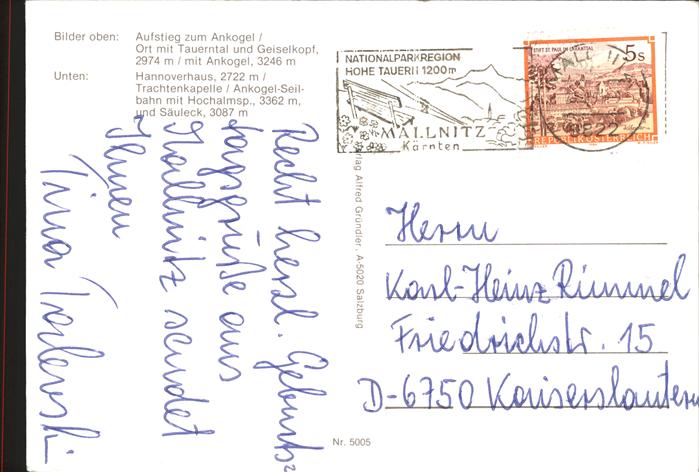 Bilder oben: Aufstieg zum Ankogel /
Ort mit Tauerntal und Geiselkopf,
2974 m / mit Ankogel, 3246 m
Unten: Hannoverhaus, 2722 m /
Trachtenkapelle / Ankogel-Seil-
bahn mit Hochalmsp., 3362 m,
und Säuleck, 3087 m
NATIONALPARKREGION
HOHE TAUERN 1200m
MALLNITZ
Kärnten
STIFT ST. PAUL IM LAVANTTAL
5s
REPUBLIK ÖSTERREICH
9822
Recht herzl. Geburts-
tagsgrüße aus
Mallnitz sendet
Ihnen
Tina
rlag Alfred Gründler, A-5020 Salzburg
Herrn
Karl-Heinz Rimmel
Friedrichstr. 15
D-6750 Kaiserslautern
Nr. 5005